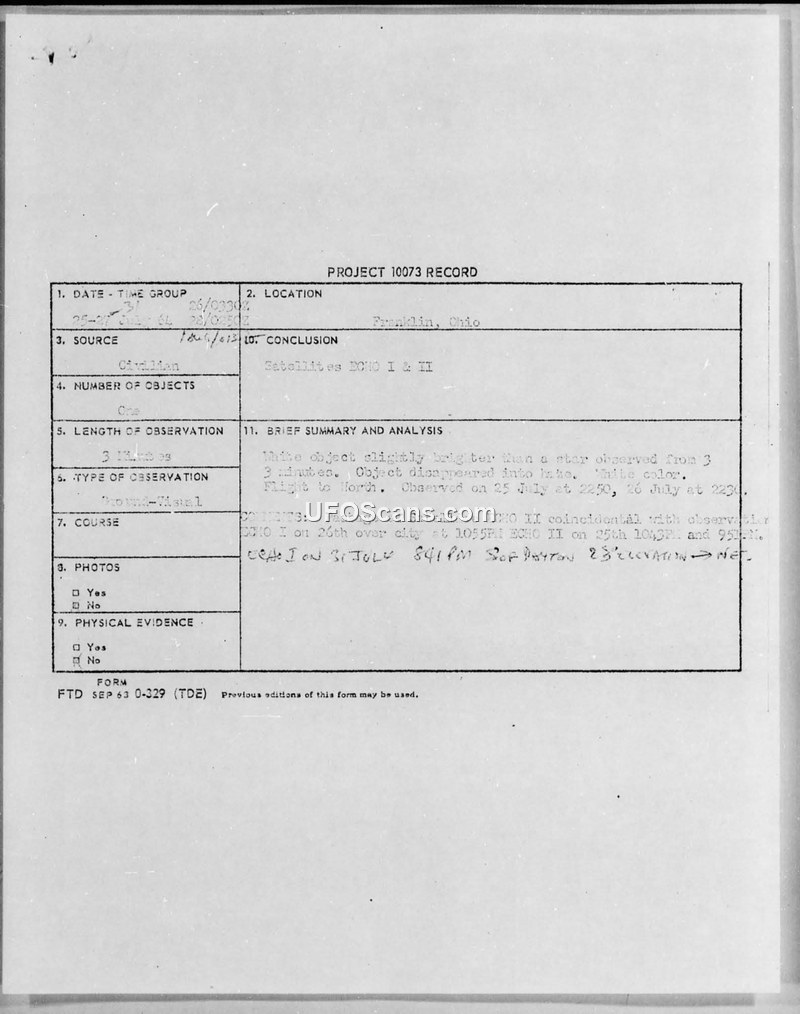 PROJECT 10073 RECORD
1. DATE - TIME GROUP
31 26/0330Z
25-27 July 64 28/0250Z
2. LOCATION
Franklin, Ohio
3. SOURCE
Civilian
10. CONCLUSION
Satellites ECHO I & II
4. NUMBER OF OBJECTS
One
5. LENGTH OF OBSERVATION
3 Minutes
6. TYPE OF OBSERVATION
Ground-Visual
7. COURSE
8. PHOTOS
□ Yes
□ No
9. PHYSICAL EVIDENCE
□ Yes
□ No
11. BRIEF SUMMARY AND ANALYSIS
White object slightly brighter than a star observed from 3
3 minutes. Object disappeared into haze. White color.
Flight to North. Observed on 25 July at 2250, 26 July at 2230.
II coincidental with observation
ECHO I on 26th over city at 1055PM ECHO II on 25th 1043PM and 95
ECHO I ON 31 JULY 841 PM S OF DAYTON 23° ELEVATION → NE
UFOScans.com
FORM
FTD SEP 63 0-329 (TDE) Previous editions of this form may be used.